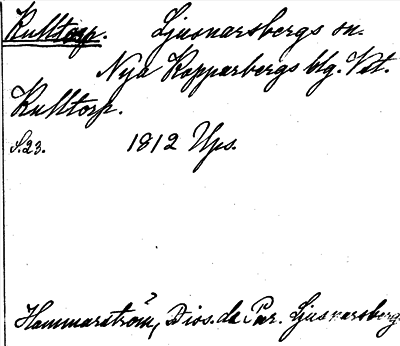 Kulltorp. Ljusnarsbergs sn.
Nya Kopparbergs blg. Vst.
Kulltorp.
S.23. 1812 Ups.
Hammarström, Diss. de Par. Ljusnarsberg